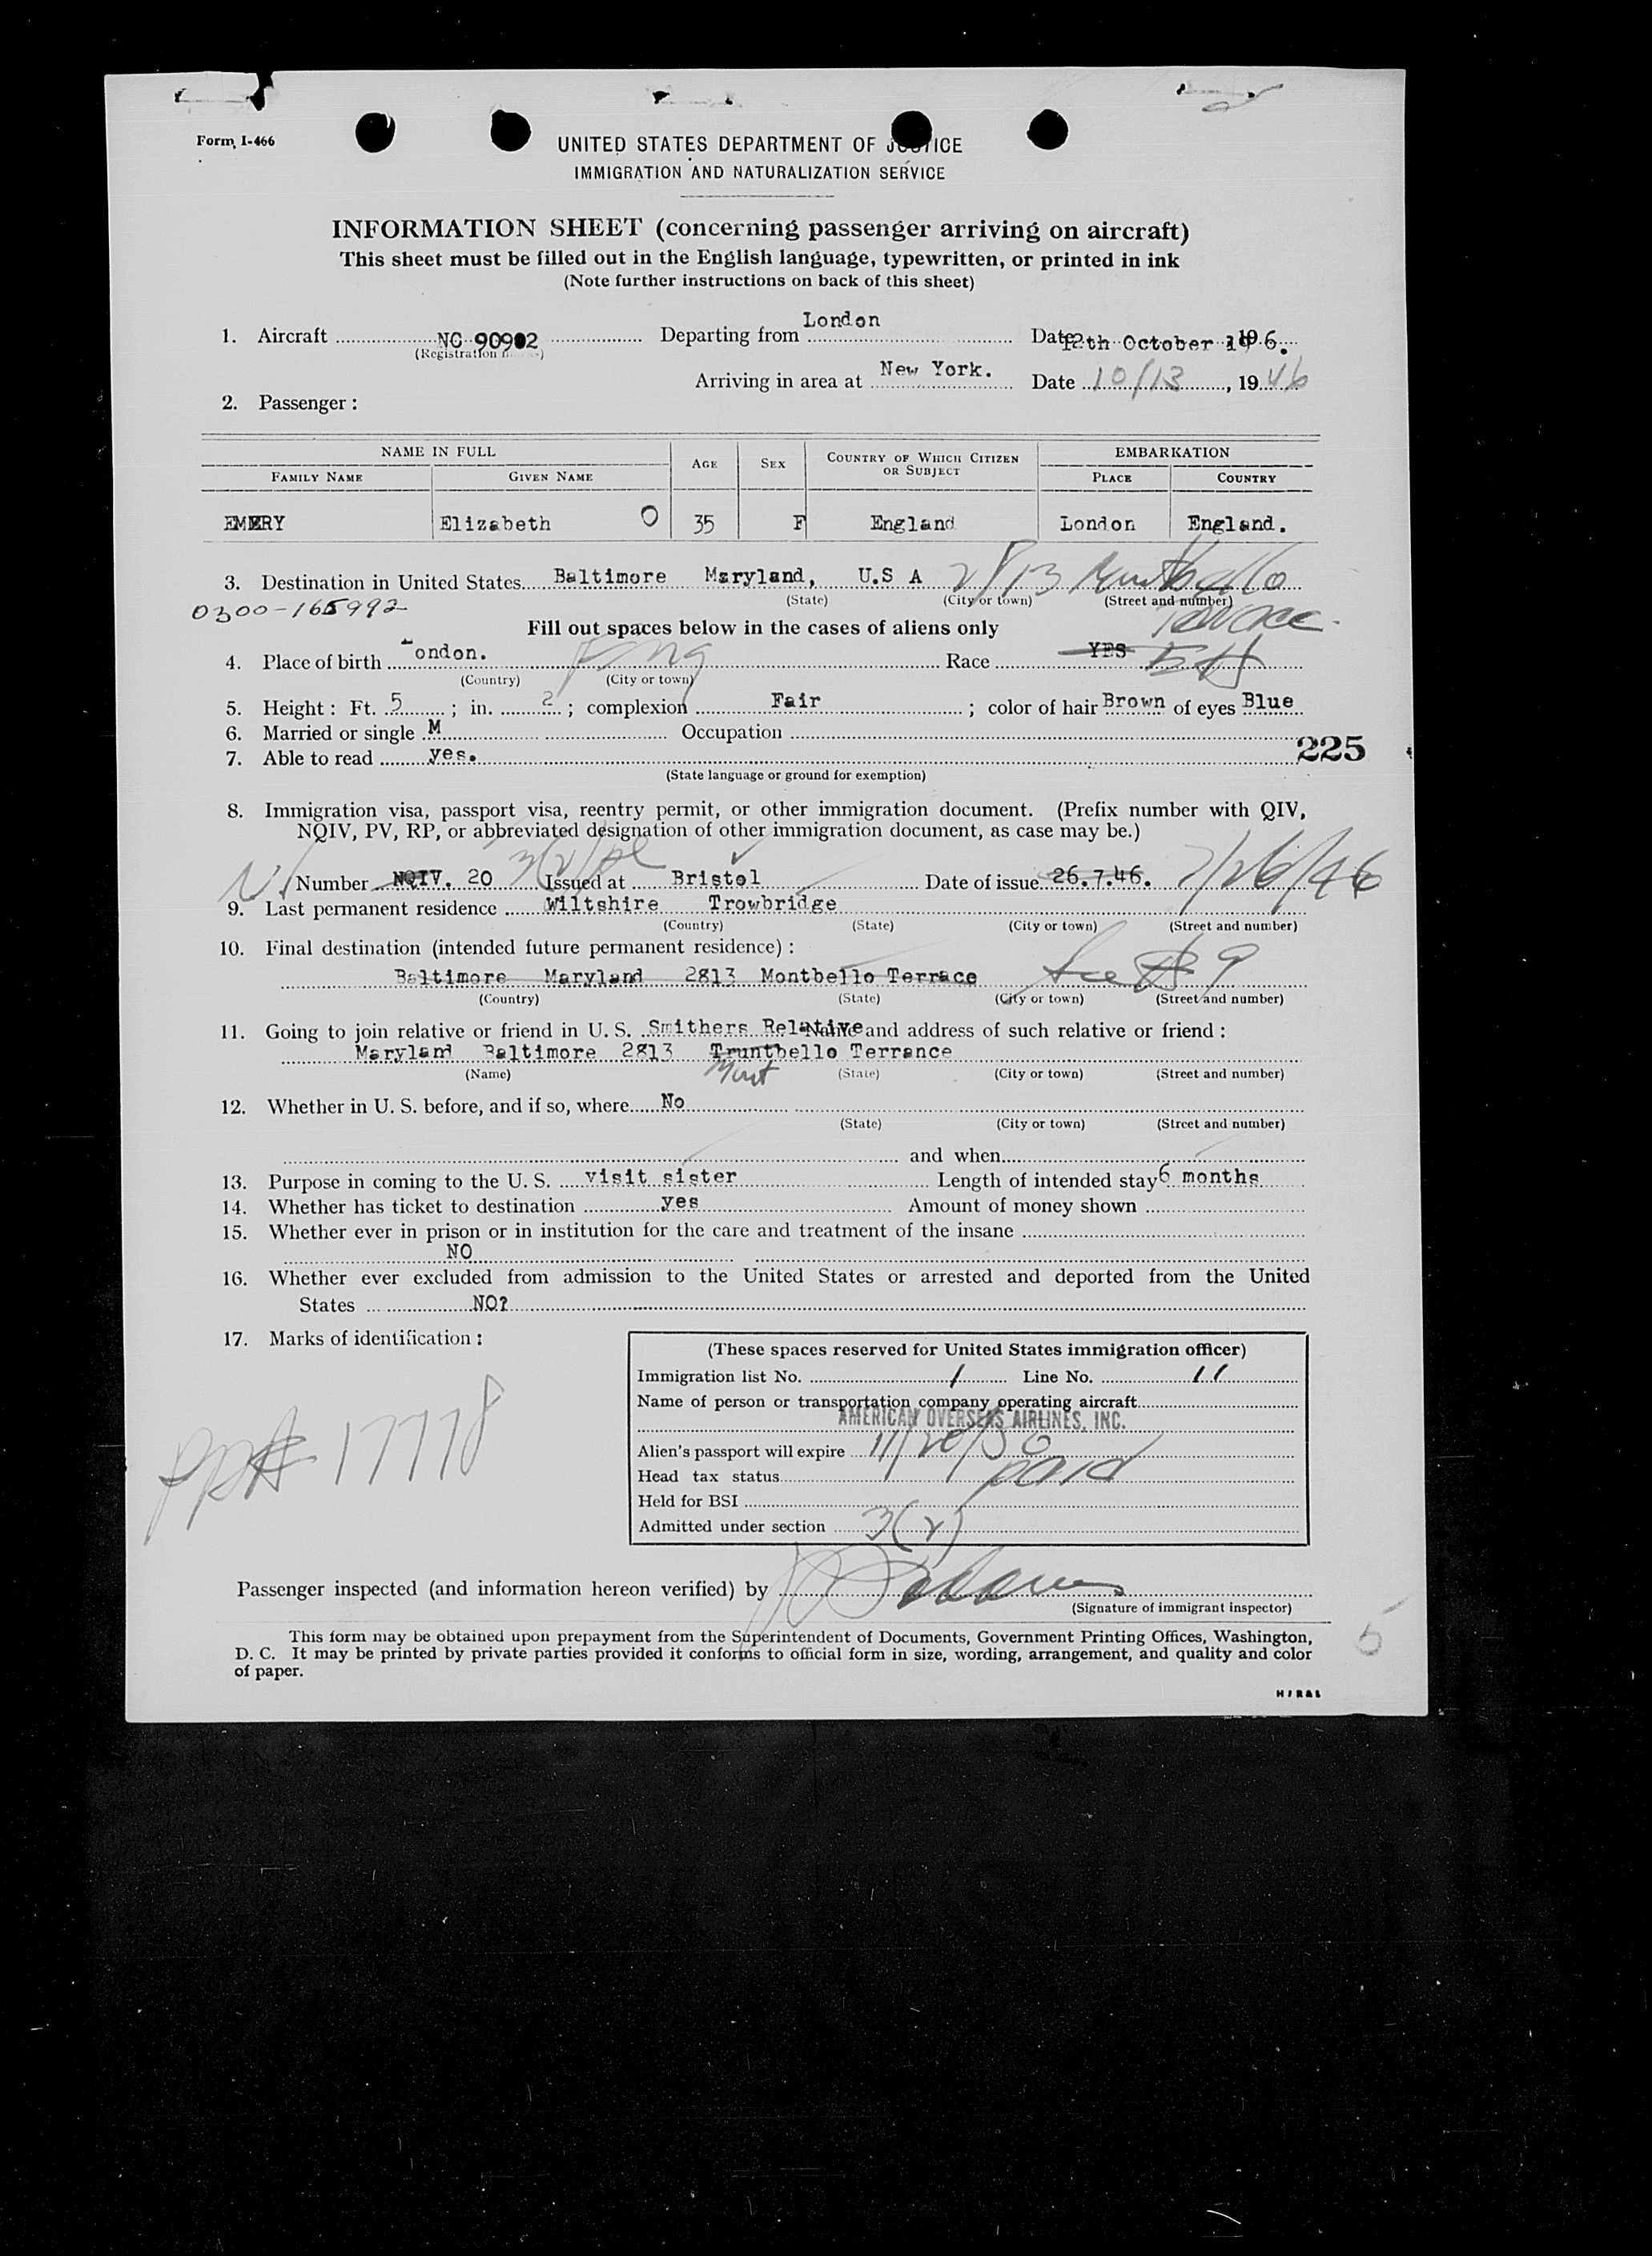 Form I-466
UNITED STATES DEPARTMENT OF JUSTICE
IMMIGRATION AND NATURALIZATION SERVICE
INFORMATION SHEET (concerning passenger arriving on aircraft)
This sheet must be filled out in the English language, typewritten, or printed in ink
(Note further instructions on back of this sheet)
1. Aircraft NC 90902 Departing from London Date 12th October 1946.
(Registration
Arriving in area at New York. Date 10/13, 1946
2. Passenger:
NAME IN FULL AGE SEX COUNTRY OF WHICH CITIZEN OR SUBJECT EMBARKATION
FAMILY NAME GIVEN NAME PLACE COUNTRY
EMERY Elizabeth O 35 F England London England.
3. Destination in United States Baltimore Maryland, U.S A 2813 Montbello Terrace
(State) (City or town) (Street and number)
0300-165992
Fill out spaces below in the cases of aliens only
4. Place of birth London. Eng Race YES
(Country) (City or town)
5. Height: Ft. 5; in. 2; complexion Fair; color of hair Brown of eyes Blue
6. Married or single M Occupation
7. Able to read yes.
225
(State language or ground for exemption)
8. Immigration visa, passport visa, reentry permit, or other immigration document. (Prefix number with QIV,
NQIV, PV, RP, or abbreviated designation of other immigration document, as case may be.)
Number NQIV. 20 3(2) Issued at Bristol Date of issue 26.7.46. 7/26/46
9. Last permanent residence Wiltshire Trowbridge
(Country) (State) (City or town) (Street and number)
10. Final destination (intended future permanent residence):
Baltimore Maryland 2813 Montbello Terrace See # 9
(Country) (State) (City or town) (Street and number)
11. Going to join relative or friend in U. S. Smithers Relative Name and address of such relative or friend:
Maryland Baltimore 2813 Truntbello Terrance
Mont
(Name) (State) (City or town) (Street and number)
12. Whether in U. S. before, and if so, where No
(State) (City or town) (Street and number)
and when
13. Purpose in coming to the U. S. visit sister Length of intended stay 6 months
14. Whether has ticket to destination yes Amount of money shown
15. Whether ever in prison or in institution for the care and treatment of the insane
NO
16. Whether ever excluded from admission to the United States or arrested and deported from the United
States NO?
17. Marks of identification:
PP# 17778
(These spaces reserved for United States immigration officer)
Immigration list No. 1 Line No. 11
Name of person or transportation company operating aircraft
AMERICAN OVERSEAS AIRLINES, INC.
Alien's passport will expire 11/20/50
Head tax status paid
Held for BSI
Admitted under section 3(2)
Passenger inspected (and information hereon verified) by
(Signature of immigrant inspector)
This form may be obtained upon prepayment from the Superintendent of Documents, Government Printing Offices, Washington,
D. C. It may be printed by private parties provided it conforms to official form in size, wording, arrangement, and quality and color
of paper.
5